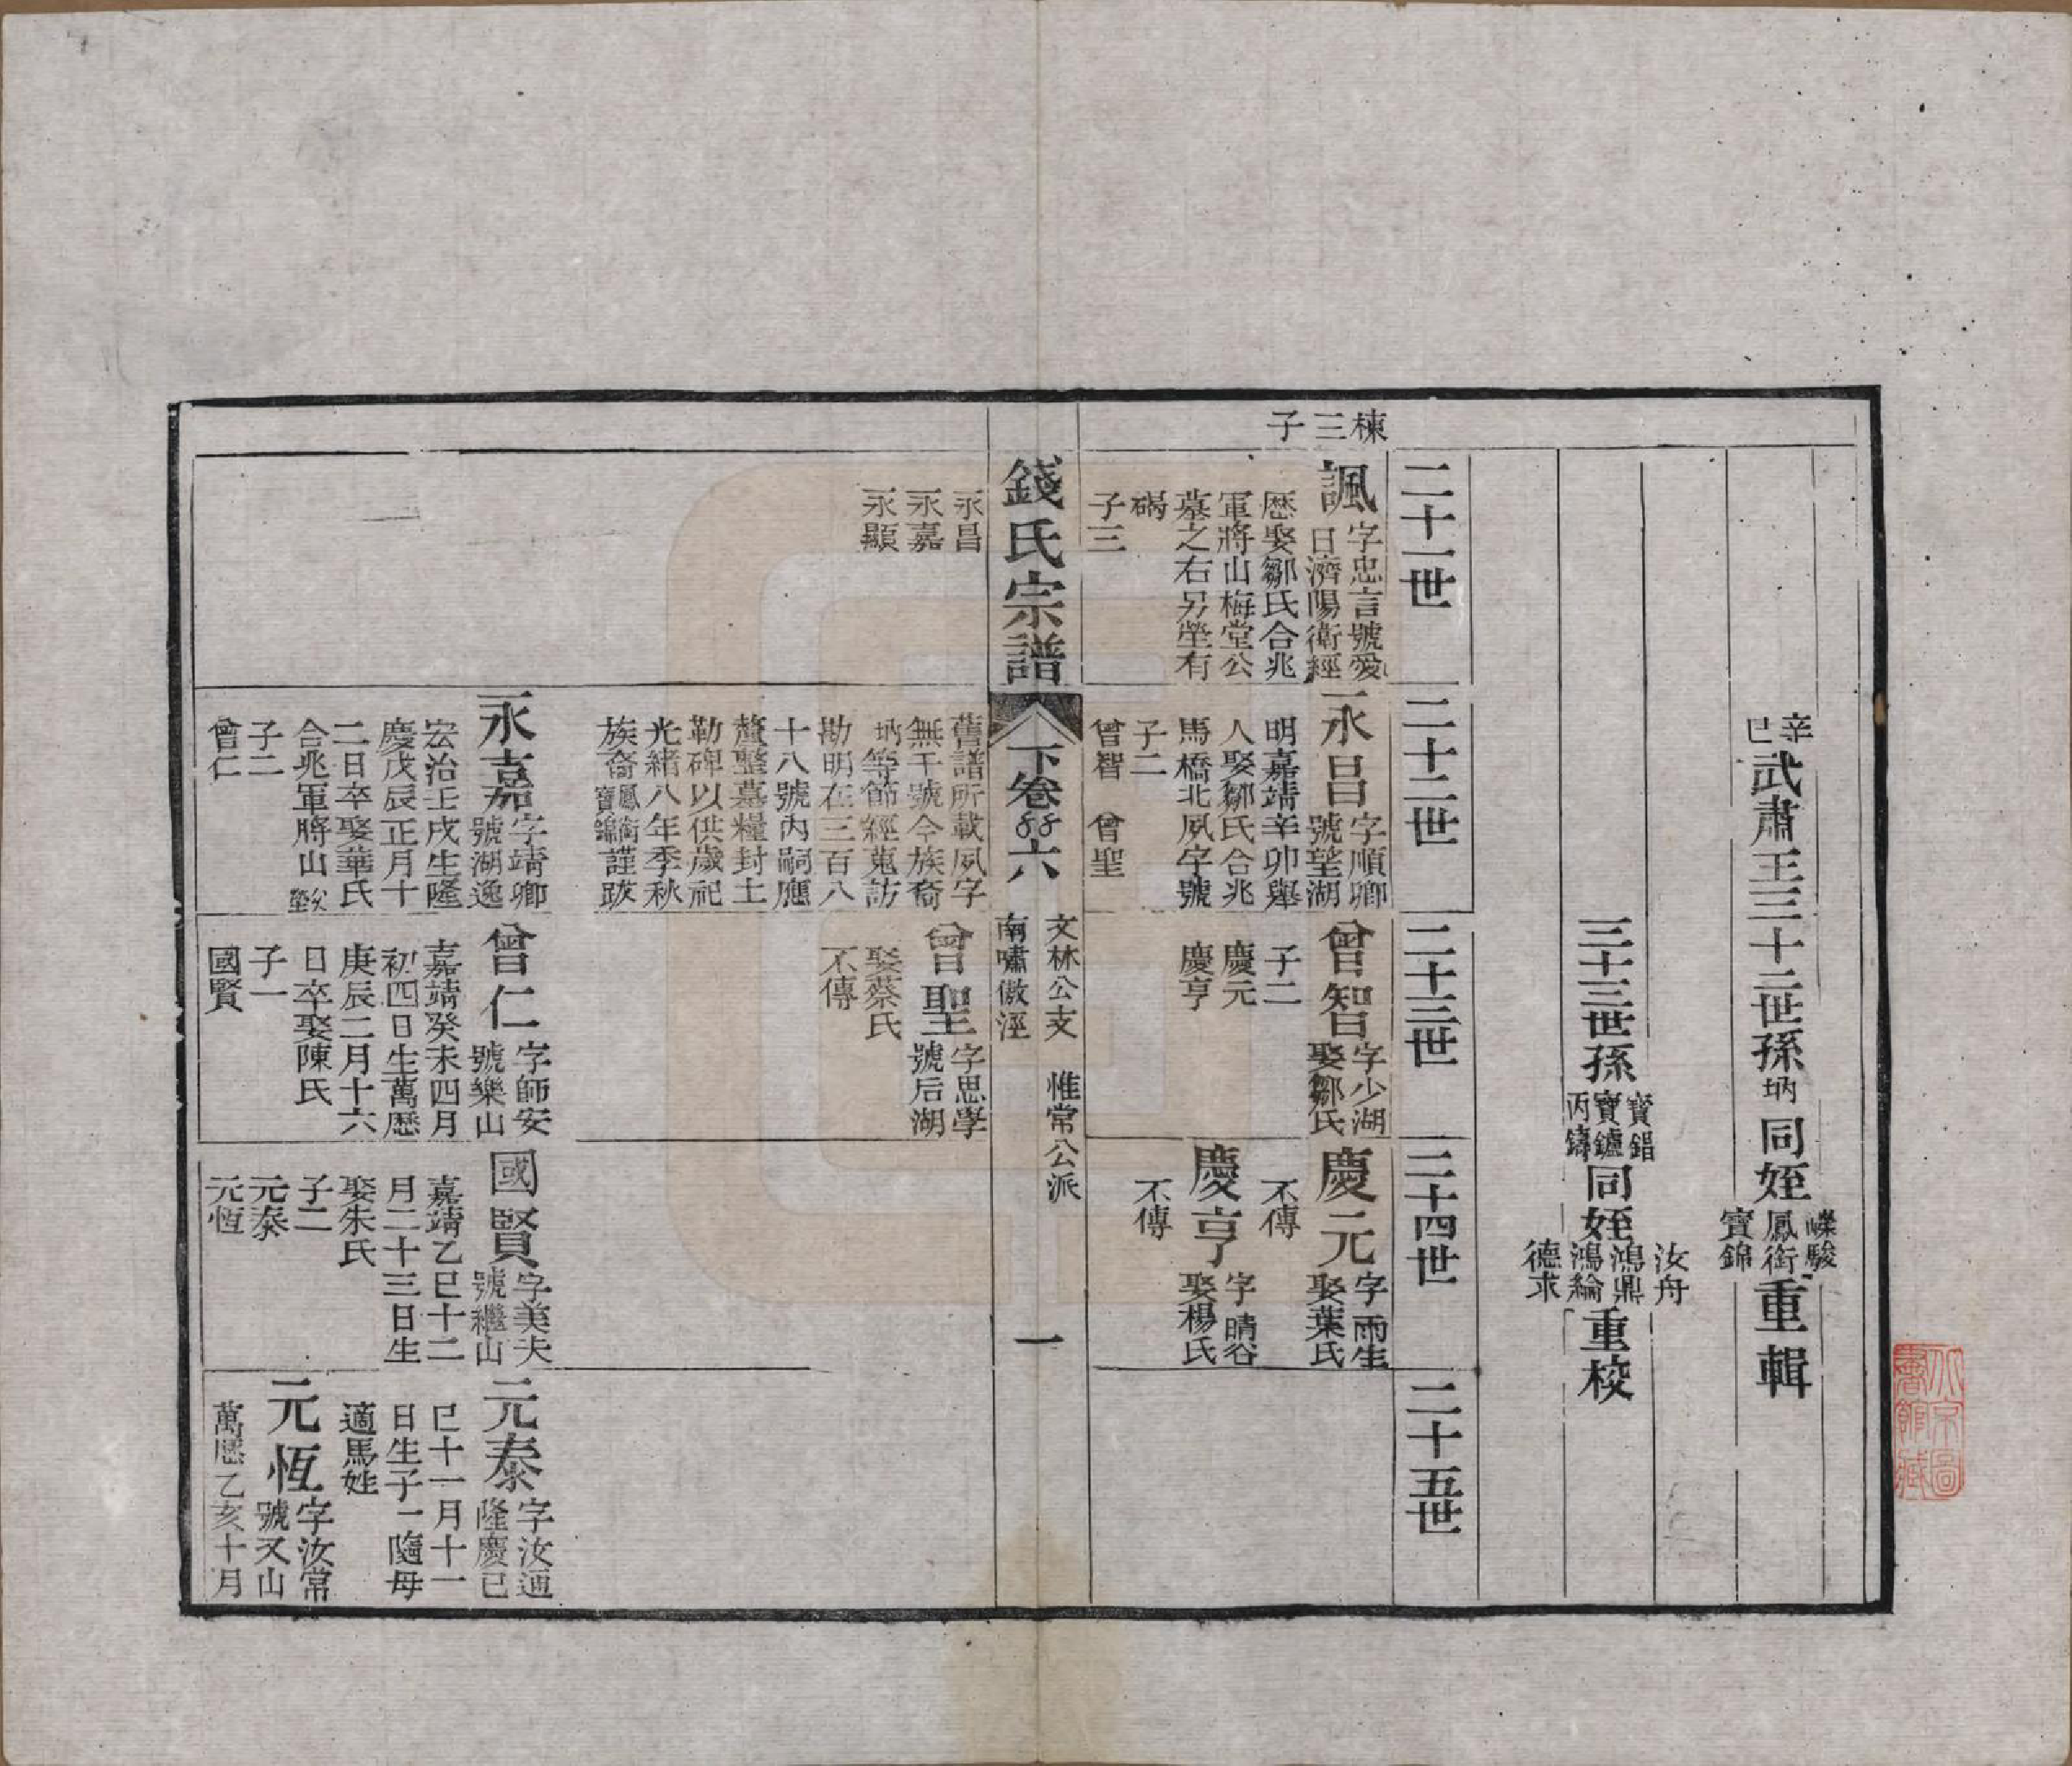 辛巳武肅王三十二世孫㘨同姪嶸駿鳳銜寶錦重輯
三十三世孫寶錩寶鑪丙鑄同姪汝舟鴻鼎鴻綸德求重校
二十一世
二十二世
二十三世
二十四世
二十五世
棟三子
諷字忠言號愛
日濟陽衛經
歷娶鄒氏合兆
軍將山梅堂公
墓之右另塋有
碣
子三
永昌
永嘉
永顯
永昌字順卿
號望湖
明嘉靖辛卯舉
人娶鄒氏合兆
馬橋北夙字號
子二
曾智 曾聖
舊譜所載夙字
無干號今族裔
㘨等節經蒐訪
勘明在三百八
十八號內嗣應
釐整墓糧封土
勒碑以供歲祀
光緒八年季秋
族裔鳳銜寶錦謹跋
曾智字少湖
娶鄒氏
子二
慶元
慶亨
曾聖字思學
號后湖
娶蔡氏
不傳
慶元字雨生
娶葉氏
不傳
慶亨字晴谷
娶楊氏
不傳
錢氏宗譜
下卷
六
文林公支 惟常公派
南嘯傲涇
一
永嘉字靖卿
號湖逸
宏治壬戌生隆
慶戊辰正月十
二日卒娶華氏
合兆軍將山父塋
子二
曾仁
曾仁字師安
號樂山
嘉靖癸未四月
初四日生萬歷
庚辰二月十六
日卒娶陳氏
子一
國賢
國賢字美夫
號繼山
嘉靖乙巳十二
月二十三日生
娶朱氏
子二
元泰
元恆
元泰字汝通
隆慶己
巳十一月十一
日生子一隨母
適馬姓
元恆字汝常
號又山
萬歷乙亥十月